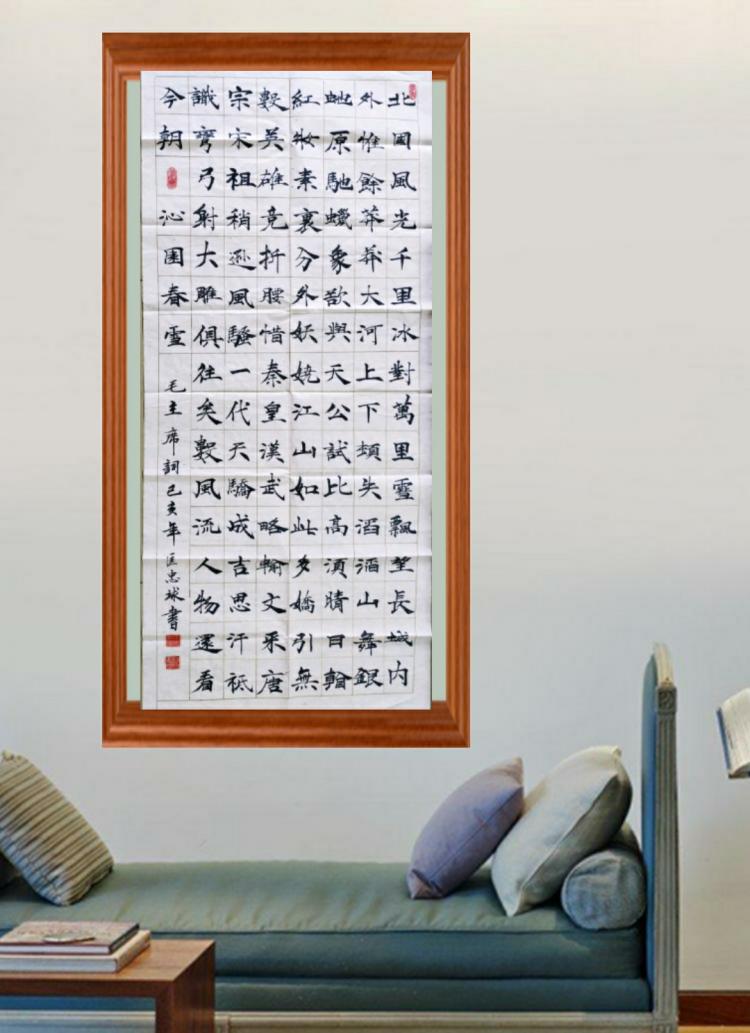 北國風光千里冰對萬里雪飄望長城内
外惟餘莽莽大河上下頓失滔滔山舞銀
虵原馳蠟象欲與天公試比高湏晴日翰
紅妝素裹分外妖嬈江山如此多嬌引無
數英雄竞折腰惜秦皇漢武略輸文采唐
宗宋祖稍遜風騷一代天驕成吉思汗祗
識彎弓射大雕俱往矣數風流人物還看
今朝 沁園春雪 毛主席詞己亥年匡忠球書